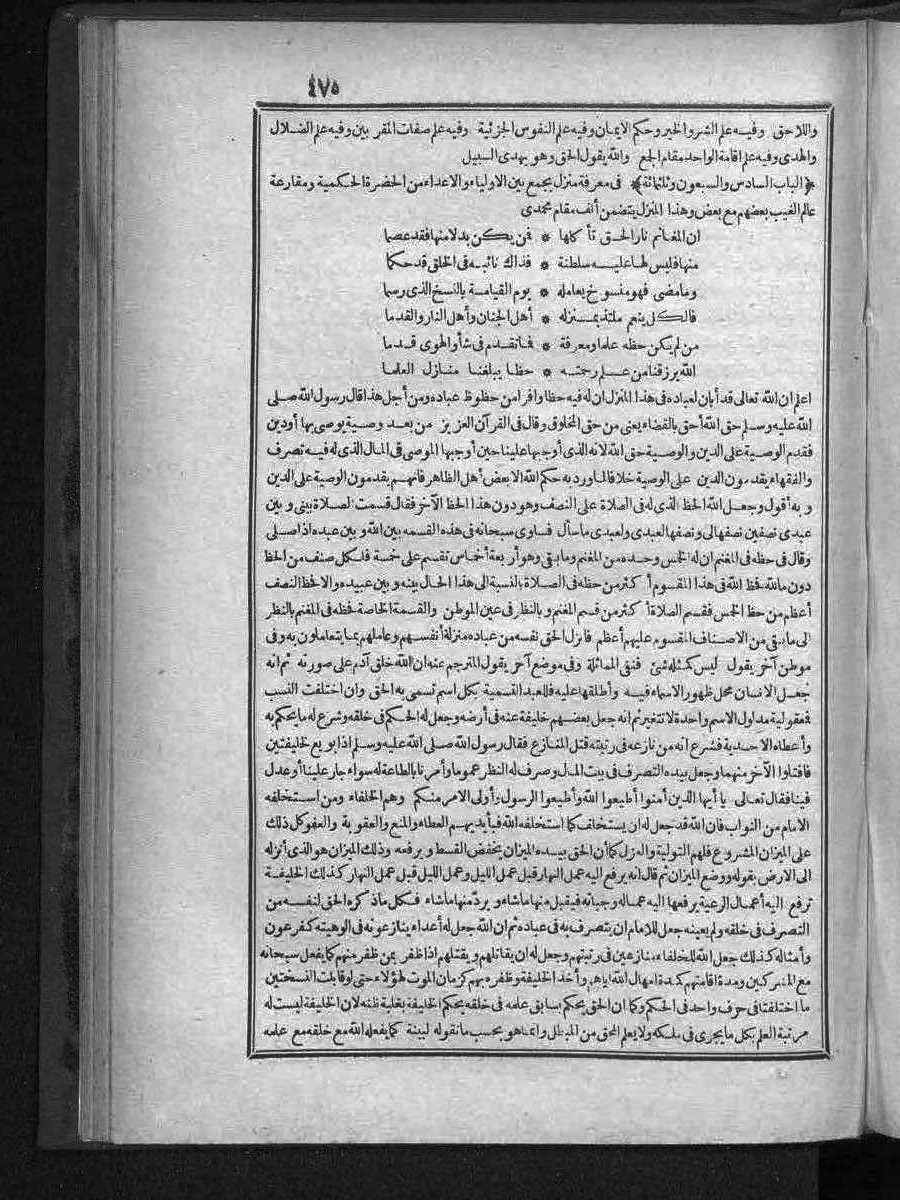 ٤٧٥
واللاحق وفيه علم الشر والخير وحكم الايمان وفيه علم النفوس الجزئية وفيه علم صفات المقربين وفيه علم الضلال
والهدى وفيه علم اقامة الواحد مقام الجمع والله يقول الحق وهو يهدى السبيل
﴿الباب السادس والسبعون وثلثمائة﴾ فى معرفة منزل يجمع بين الاولياء والاعداء من الحضرة الحكمية ومقارعة
عالم الغيب بعضهم مع بعض وهذا المنزل يتضمن ألف مقام محمدى
ان المغانم نار الحق تأكلها * فمن يكن بدلا منها فقد عصما
منها فليس لها عليه سلطنة * فذاك نائبه فى الخلق قد حكما
وما مضى فهو منسوخ يعامله * يوم القيامة بالنسخ الذى رسما
فالكل ينعم ملتذ بمنزله * أهل الجنان وأهل النار والقدما
من لم يكن حظه علما ومعرفة * فما تقدم فى شأو الهوى قدما
الله يرزقنا من علم رحمته * حظا يبلغنا منازل العلما
اعلم ان الله تعالى قد أبان لعباده فى هذا المنزل ان له فيه حظا وافرا من حظوظ عباده ومن أجل هذا قال رسول الله صلى
الله عليه وسلم حق الله أحق بالقضاء يعنى من حق المخلوق وقال فى القرآن العزيز من بعد وصية يوصى بها أو دين
فقدم الوصية على الدين والوصية حق الله لانه الذى أوجبها علينا حين أوجبها الموصى فى المال الذى له فيه تصرف
والفقهاء يقدمون الدين على الوصية خلافا لما ورد به حكم الله الا بعض أهل الظاهر فانهم يقدمون الوصية على الدين
وبه أقول وجعل الله الحظ الذى له فى الصلاة على النصف وهو دون هذا الحظ الآخر فقال قسمت الصلاة بينى وبين
عبدى نصفين نصفها لى ونصفها لعبدى ولعبدى ما سأل فساوى سبحانه فى هذه القسمة بين الله وبين عبده اذا صلى
وقال فى حظه فى المغنم ان له الخمس وحده من المغنم وما بقى وهو أربعة أخماس تقسم على خمسة فلكل صنف من الحظ
دون ما لله فحظ الله فى هذا المقسوم أكثر من حظه فى الصلاة بالنسبة الى هذا الحال بينه وبين عبيده والا فحظ النصف
أعظم من حظ الخمس فقسم الصلاة أكثر من قسم المغنم وبالنظر فى عين الموطن والقسمة الخاصة فحظه فى المغنم بالنظر
الى ما بقى من الاصناف المقسوم عليهم أعظم فانزل الحق نفسه من عباده منزلة أنفسهم وعاملهم بما يتعاملون به وفى
موطن آخر يقول ليس كمثله شئ فنفى المماثلة وفى موضع آخر يقول المترجم عنه ان الله خلق آدم على صورته ثم انه
جعل الانسان محل ظهور الاسماء فيه وأطلقها عليه فللعبد التسمية بكل اسم تسمى به الحق وان اختلفت النسب
فمعقولية مدلول الاسم واحدة لا تتغير ثم انه جعل بعضهم خليفة عنه فى أرضه وجعل له الحكم فى خلقه وشرع له ما يحكم به
وأعطاه الاحدية فشرع انه من نازعه فى رتبته قتل المنازع فقال رسول الله صلى الله عليه وسلم اذا بويع خليفتين
فاقتلوا الآخر منهما وجعل بيده التصرف فى بيت المال وصرف له النظر عموما وأمرنا بالطاعة له سواء جار علينا أو عدل
فينا فقال تعالى يا أيها الذين آمنوا أطيعوا الله وأطيعوا الرسول وأولى الامر منكم وهم الخلفاء ومن استخلفه
الامام من النواب فان الله قد جعل له ان يستخلف كما استخلفه الله فبأيديهم العطاء والمنع والعقوبة والعفو كل ذلك
على الميزان المشروع فلهم التولية والعزل كما أن الحق بيده الميزان يخفض القسط ويرفعه وذلك الميزان هو الذى أنزله
الى الارض بقوله ووضع الميزان ثم قال انه يرفع اليه عمل النهار قبل عمل الليل وعمل الليل قبل عمل النهار كذلك الخليفة
ترفع اليه أعمال الرعية يرفعها اليه عماله وجباته فيقبل منها ما شاء ويرد منها ما شاء فكل ما ذكره الحق لنفسه من
التصرف فى خلقه ولم يعينه جعل للامام ان يتصرف به فى عباده ثم ان الله جعل له أعداء ينازعونه فى الوهيته كفرعون
وأمثاله كذلك جعل الله للخلفاء منازعين فى رتبتهم وجعل له ان يقاتلهم ويقتلهم اذا ظفر بمن ظفر منهم كما يفعل سبحانه
مع المشركين ومدة اقامتهم كمدة امهال الله اياهم وأخذ الخليفة وظفره بهم كزمان الموت لهؤلاء حتى لو قابلت النسختين
ما اختلفتا فى حرف واحد فى الحكم وكما ان الحق يحكم بسابق علمه فى خلقه يحكم الخليفة بغلبة ظنه لان الخليفة ليست له
مرتبة العلم بكل ما يجرى فى ملكه ولا يعلم المحق من المبطل وانما هو بحسب ما تقوله البينة كما يفعله الله مع خلقه مع علمه